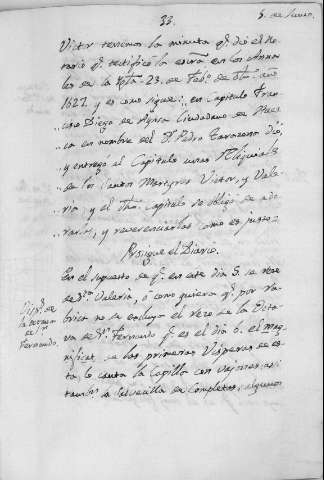 33.
5. de Junio.
Victor tenemos la minuta q.e dió el No
tario q.e testificó la entra en los Anna
les de la Igl.a 23. de Feb.o de dho año
1627. y es como sigue: en Capitulo Fran
cisco Diego de Ayera Ciudadano de Hues
ca en nombre del D.r Pedro Tarazona dió,
y entregó al Capitulo unas Reliquias
de los Santos Martyres Victor, y Vale
ria; y el dho Capitulo se obligó de ado
rarlos, y reverenciarlos como es justo.
Prosigue el Diario.
En el supuesto de q.e en este dia 5. se reze
de S.ta Valeria, ó como quiera q.e por ru
brica no se excluya el rezo de la Octa
va de S.n Fernando q.e es el dia 6. el mag
nificat de las primeras Visperas de es
ta, lo canta la Capilla con
tambn la de Completas, algunos
Octava
de S.n
Fernando.